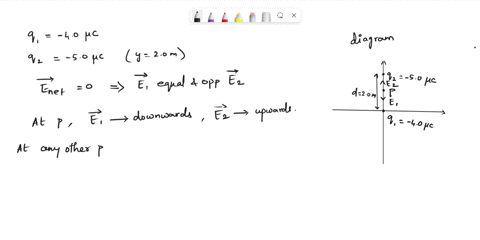 q₁ = -4.0 μC
q₂ = -5.0 μC (y = 2.0 m)
E⃗net = 0 ⇒ E⃗₁ equal & opp E⃗₂
At p, E⃗₁ → downwards, E⃗₂ → upwards.
At any other p
diagram
q₂ = -5.0 μC
E₂
d=2.0m
P
E₁
q₁ = -4.0 μC